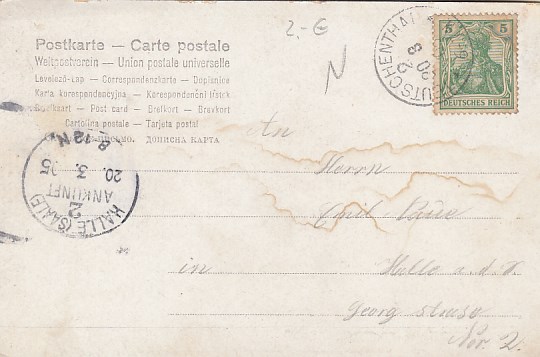 2.-€
N
Postkarte — Carte postale
Weltpostverein — Union postale universelle
Levelező-Lap — Correspondenzkarte — Dopisnice
Karta korespondencyjna — Korespondenční lístek
Briefkaart — Post card — Brefkort — Brevkort
Cartolina postale — Tarjeta postal
ДОПИСНА КАРТА
5 5
DEUTSCHES REICH
DEUTSCHENTHAL
8-12 N
20. 3. 05
ANKUNFT
2
HALLE (SAALE)
An
Herrn
Emil
in Halle a. d. S.
Georg Strase
Nr. 2.